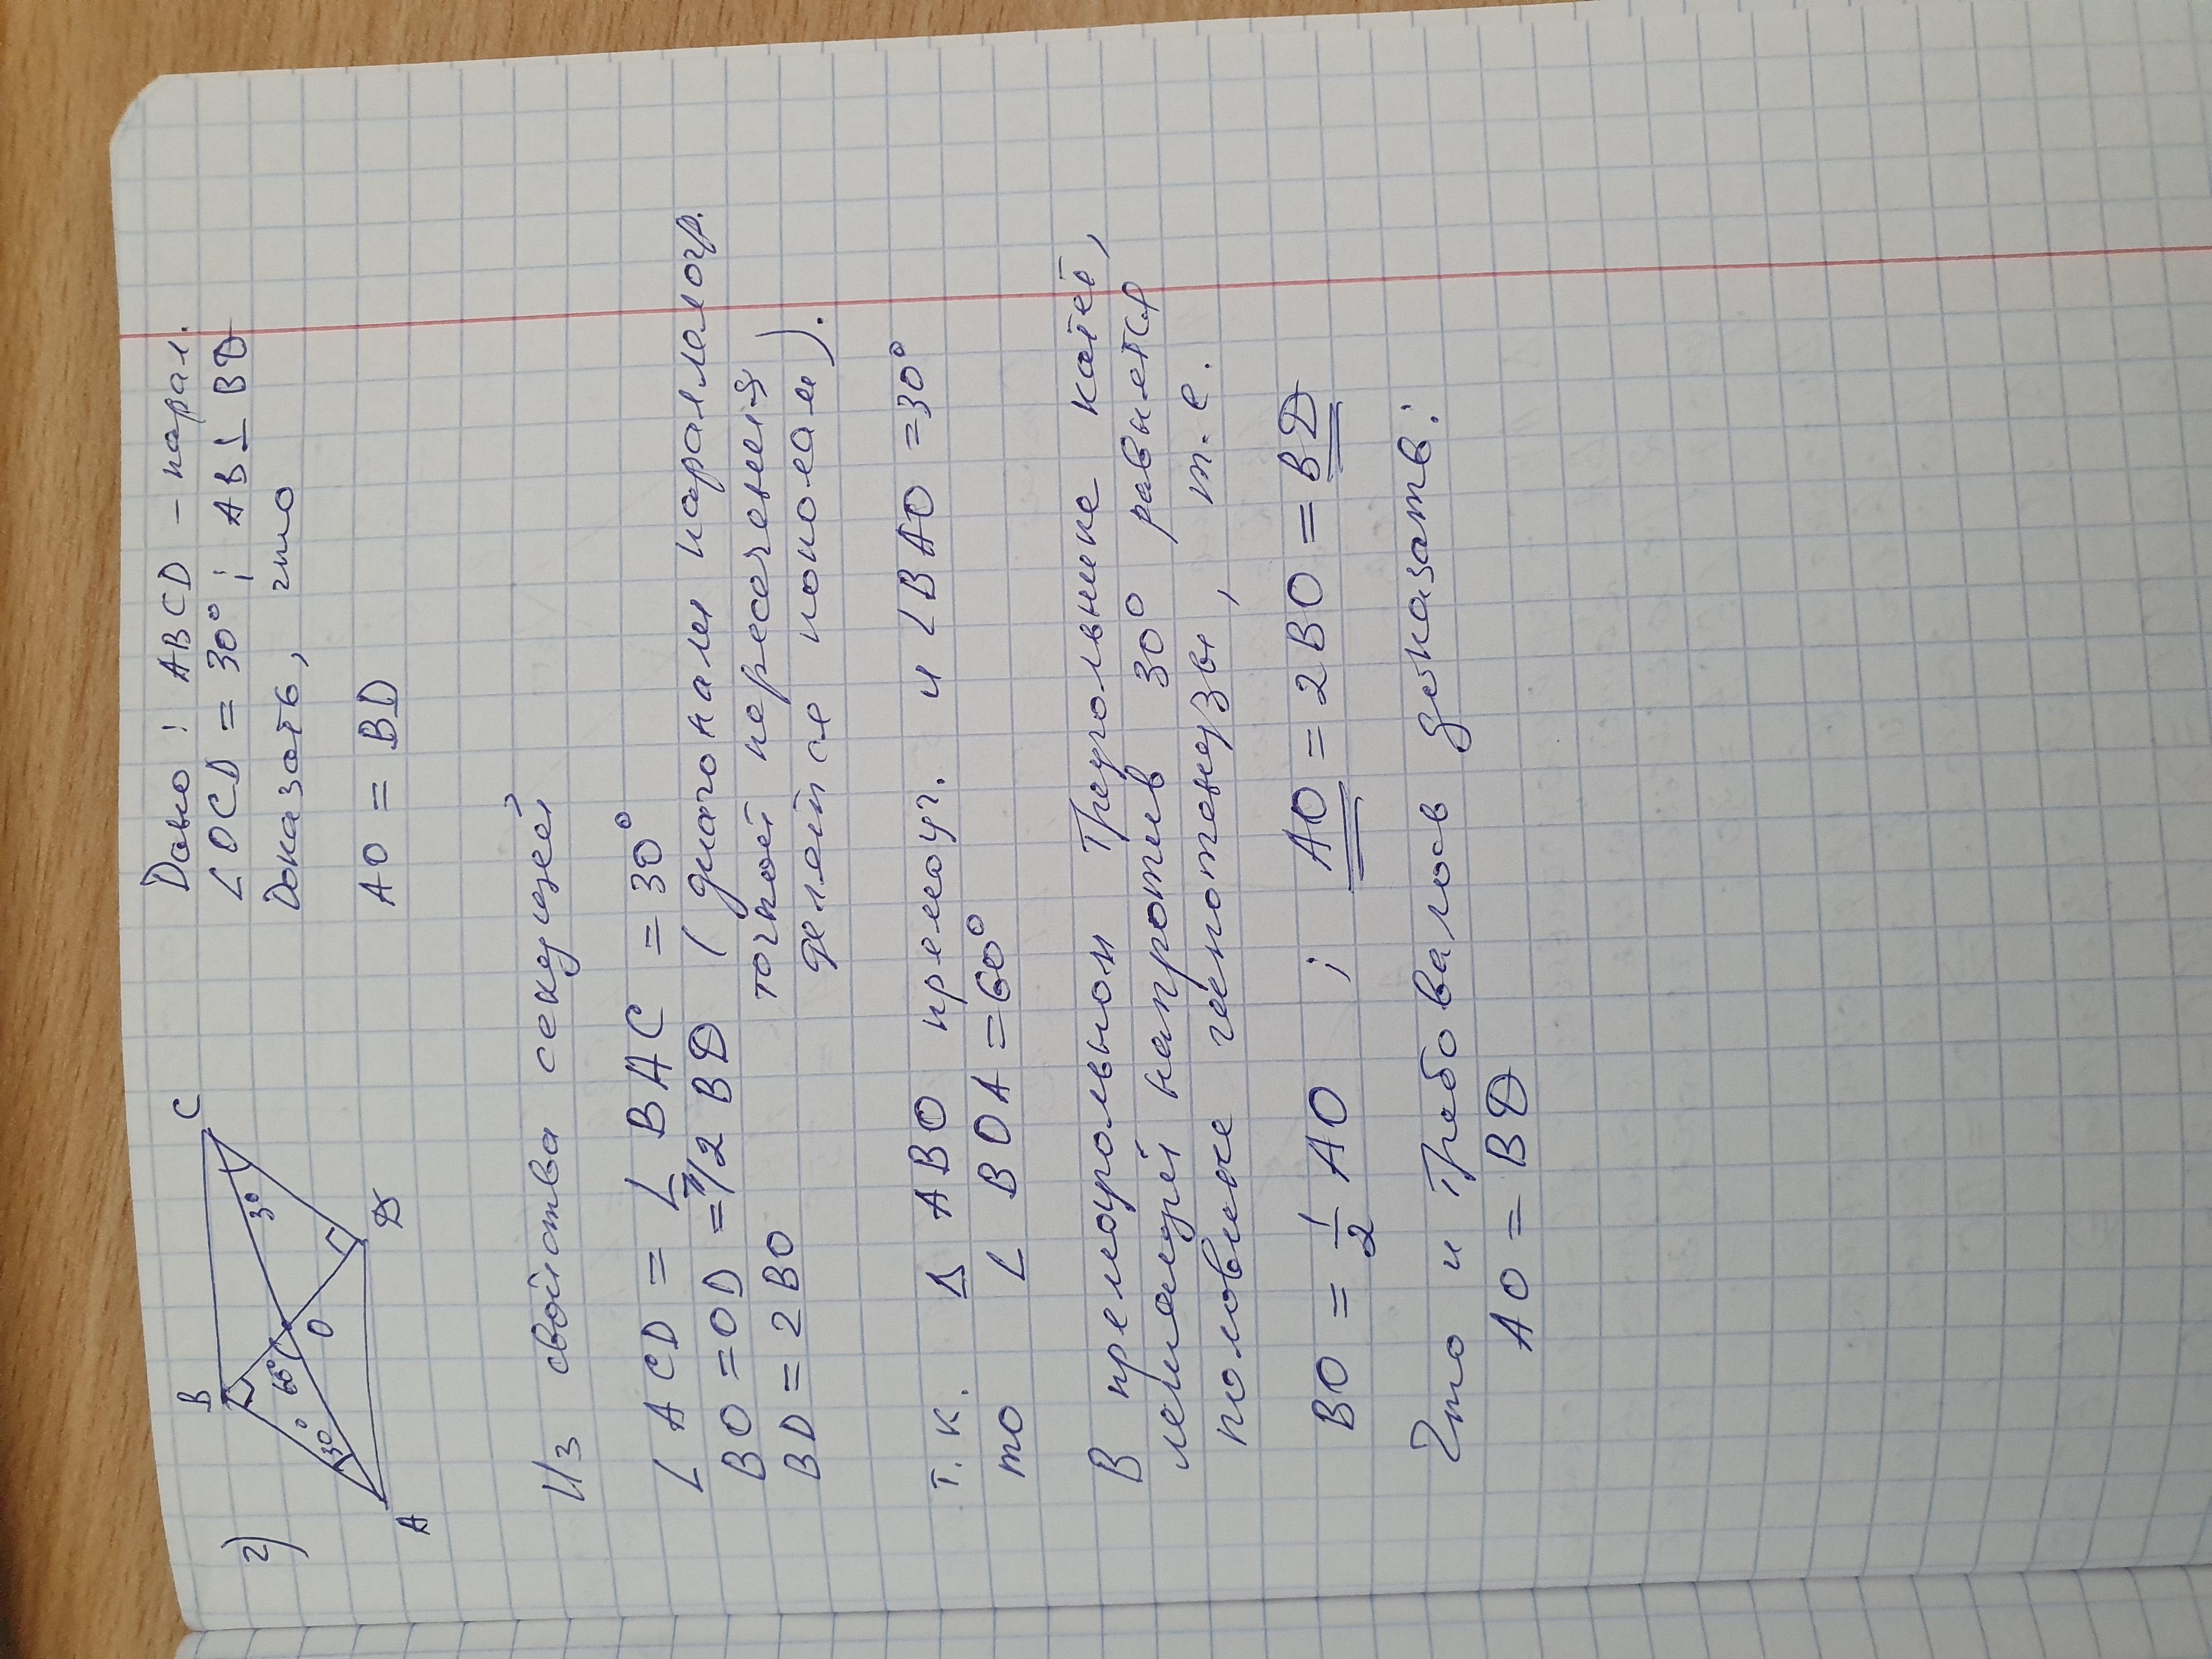 2)
B
C
A
D
O
30°
60°
30°
Дано: ABCD – парал.
∠OCD = 30°; AB⊥BD
Доказать, что
AO = BD
Из свойства секущей
∠ACD = ∠BAC = 30°
BO = OD = 1/2 BD (диагонали параллелогр.
BD = 2BO точкой пересечения
делятся пополам).
т.к. Δ ABO прямоуг. и ∠BAO = 30°
то ∠BOA = 60°
В прямоугольном треугольнике катет,
лежащей напротив 30° равняется
половине гипотенузы, т.е.
BO = 1/2 AO ; AO = 2BO = BD
Что и требовалось доказать:
AO = BD